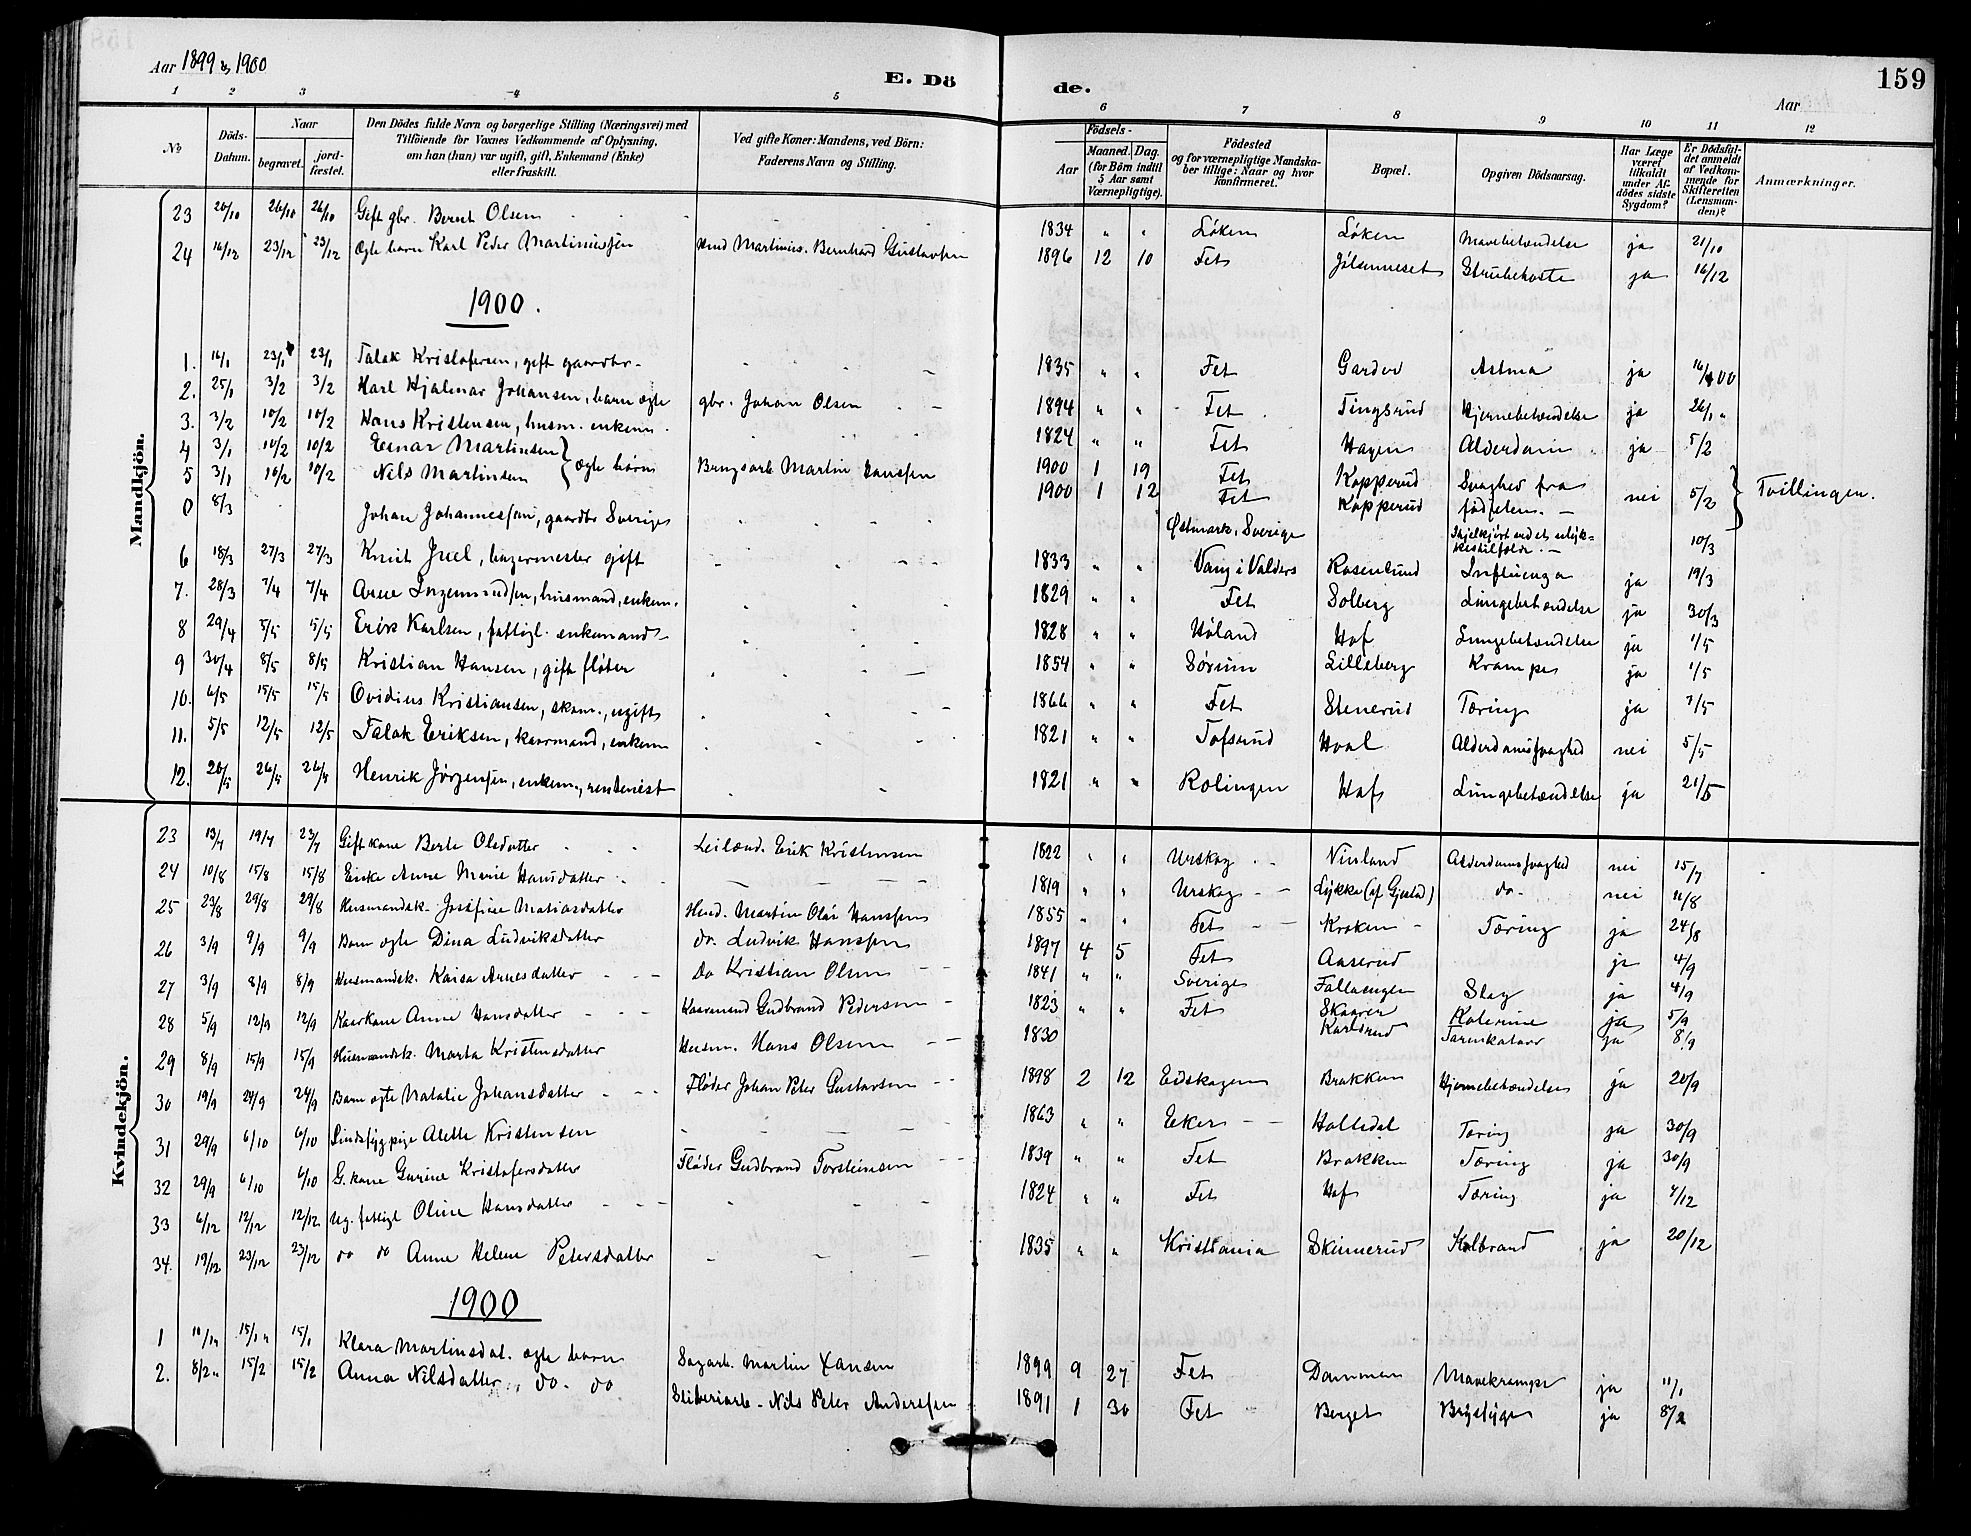 Aar 1899 & 1900
E. Dö de.
159
Aar
1 2 3 4 5 6 7 8 9 10 11 12
No
Döds-Datum.
Naar
begravet.
jord-fæstet.
Den Dödes fulde Navn og borgerlige Stilling (Næringsvei) med
Tilföiende for Voxnes Vedkommende af Oplysning,
om han (hun) var ugift, gift, Enkemand (Enke)
eller fraskilt.
Ved gifte Koner: Mandens, ved Börn:
Faderens Navn og Stilling.
Födsels-
Aar
Maaned. Dag.
(for Börn indtil
5 Aar samt
Værnepligtige).
Födested
og for værnepligtige Mandska-
ber tillige: Naar og hvor
konfirmeret.
Bopæl.
Opgiven Dödsaarsag.
Har Læge
været
tilkaldt
under Af-
dödes sidste
Sygdom?
Er Dödsfal-
det anmeldt
af Vedkom-
mende for
Skifteretten
(Lensman-
den)?
Anmærkninger.
Mandkjön.
23 20/10 26/10 26/10 Gift gbr. Bernt Olsen 1834 " " Løken Løken Mavebetændelse ja 21/10
24 16/12 23/12 23/12 Ægte barn Karl Peder Martiniussen Martinius Bernhard Gustavsen 1896 12 10 Fet Jølsenneset Strubehoste ja 16/12
1900.
1. 16/1 23/1 23/1 Talak Kristofersen, gift gaardbr. 1835 " " Fet Garder Astma ja 16/1 00
2. 25/1 3/2 3/2 Karl Hjalmar Johansen, barn ægte gbr. Johan Olsen 1894 " " Fet Tingsrud Hjernebetændelse ja 26/1 "
3. 3/2 10/2 10/2 Hans Kristensen, husm. enkem. 1824 " " Fet Hagen Alderdom ja 5/2
4 3/1 10/2 10/2 Einar Martinsen } ægte børn Brugsarb. Martin Hanssen 1900 1 19 Fet Kopperud Svaghed fra nei 5/2 } Tvillinger.
5 3/1 10/2 10/2 Nils Martinsen 1900 1 12 Fet Kopperud fødselen.
0 8/3 Johan Johannessen, gaardbr Sverige Østmark, Sverige 10/3
6 18/3 27/3 27/3 Knut Juel, bagermester gift 1833 " " Vang i Valders Rosenlund Influenza ja 19/3
7. 28/3 7/4 7/4 Arne Ingemundsen, husmand, enkem. 1829 " " Fet Solberg Lungebetændelse ja 30/3
8 29/4 5/5 5/5 Erik Karlsen, fattigl. enkemand 1828 " " Høland Hof Lungebetændelse ja 1/5
9 30/4 8/5 8/5 Kristian Hansen, gift fløter 1854 " " Sørum Lilleberg Krampe ja 1/5
10. 6/5 15/5 15/5 Ovidius Kristiansen, skom., ugift 1866 " " Fet Stenerud Tæring ja 7/5
11. 5/5 12/5 12/5 Talak Eriksen, kaarmand, enkem 1821 " " Tofsrud Hval Alderdomssvaghed nei 5/5
12. 20/5 26/5 26/5 Henrik Jørgensen, enkem., rentenist 1821 " " Rølingen Hof Lungebetændelse ja 21/5
Kvindekjön.
23 13/7 19/7 23/7 Gift kone Berte Olsdatter Leilænd. Erik Kristensen 1822 " " Urskog Ninland Alderdomssvaghed nei 15/7
24 10/8 15/8 15/8 Enke Anne Marie Hansdatter 1819 " " Urskog Lykke (af Gjæsta) do. nei 11/8
25 23/8 29/8 29/8 Husmandsk. Josefine Matiasdatter Husd. Martin Olai Hanssen 1855 " " Fet Kroken Tæring ja 24/8
26 3/9 9/9 9/9 Barn ægte Dina Ludviksdatter do. Ludvik Hanssen 1897 4 5 Fet Aaserud ja 4/9
27 3/9 8/9 8/9 Husmandsk. Kaisa Arnesdatter Do Kristian Olsen 1841 " " Sverige Fallaengen Slag ja 4/9
28 5/9 12/9 12/9 Kaarkone Anne Hansdatter Kaarmand Gudbrand Pedersen 1823 " " Fet Skaarer Kolerine ja 5/9
29 8/9 15/9 15/9 Husmandsk. Marta Kristensdatter Husm. Hans Olsen 1830 Karlsrud Tarmkatarr ja 8/9
30 19/9 24/9 24/9 Barn ægte Natalie Johansdatter Fløder Johan Peter Gustavsen 1898 2 12 Eidskogen Brakken Hjernebetændelse ja 20/9
31 29/9 6/10 6/10 Sindssyg pige Alette Kristensen 1863 " " Eker Holledal Tæring ja 30/9
32 29/9 6/10 6/10 G. kone Gurine Kristofersdatter Fløder Gudbrand Torsteinsen 1839 " " Fet Brakken Tæring ja 30/9
33 6/12 12/12 12/12 Ug. fattigl Oline Hansdatter 1824 " " Fet Hof Tæring ja 7/12
34. 19/12 23/12 23/12 do do Anne Helene Petersdatter 1835 " " Kristiania Skinnerud Kolbrand ja 20/12
1900
1 15/1 15/1 Klara Martinsdat. ægte barn Sagarb. Martin Hansen 1899 9 27 Fet Dammen Mavekrampe ja 11/1
2. 8/2 15/2 15/2 Anna Nilsdatter, do. do Sliberiarb. Nils Peter Anderssen 1891 1 30 Fet Berget Brystsyge ja 8/2